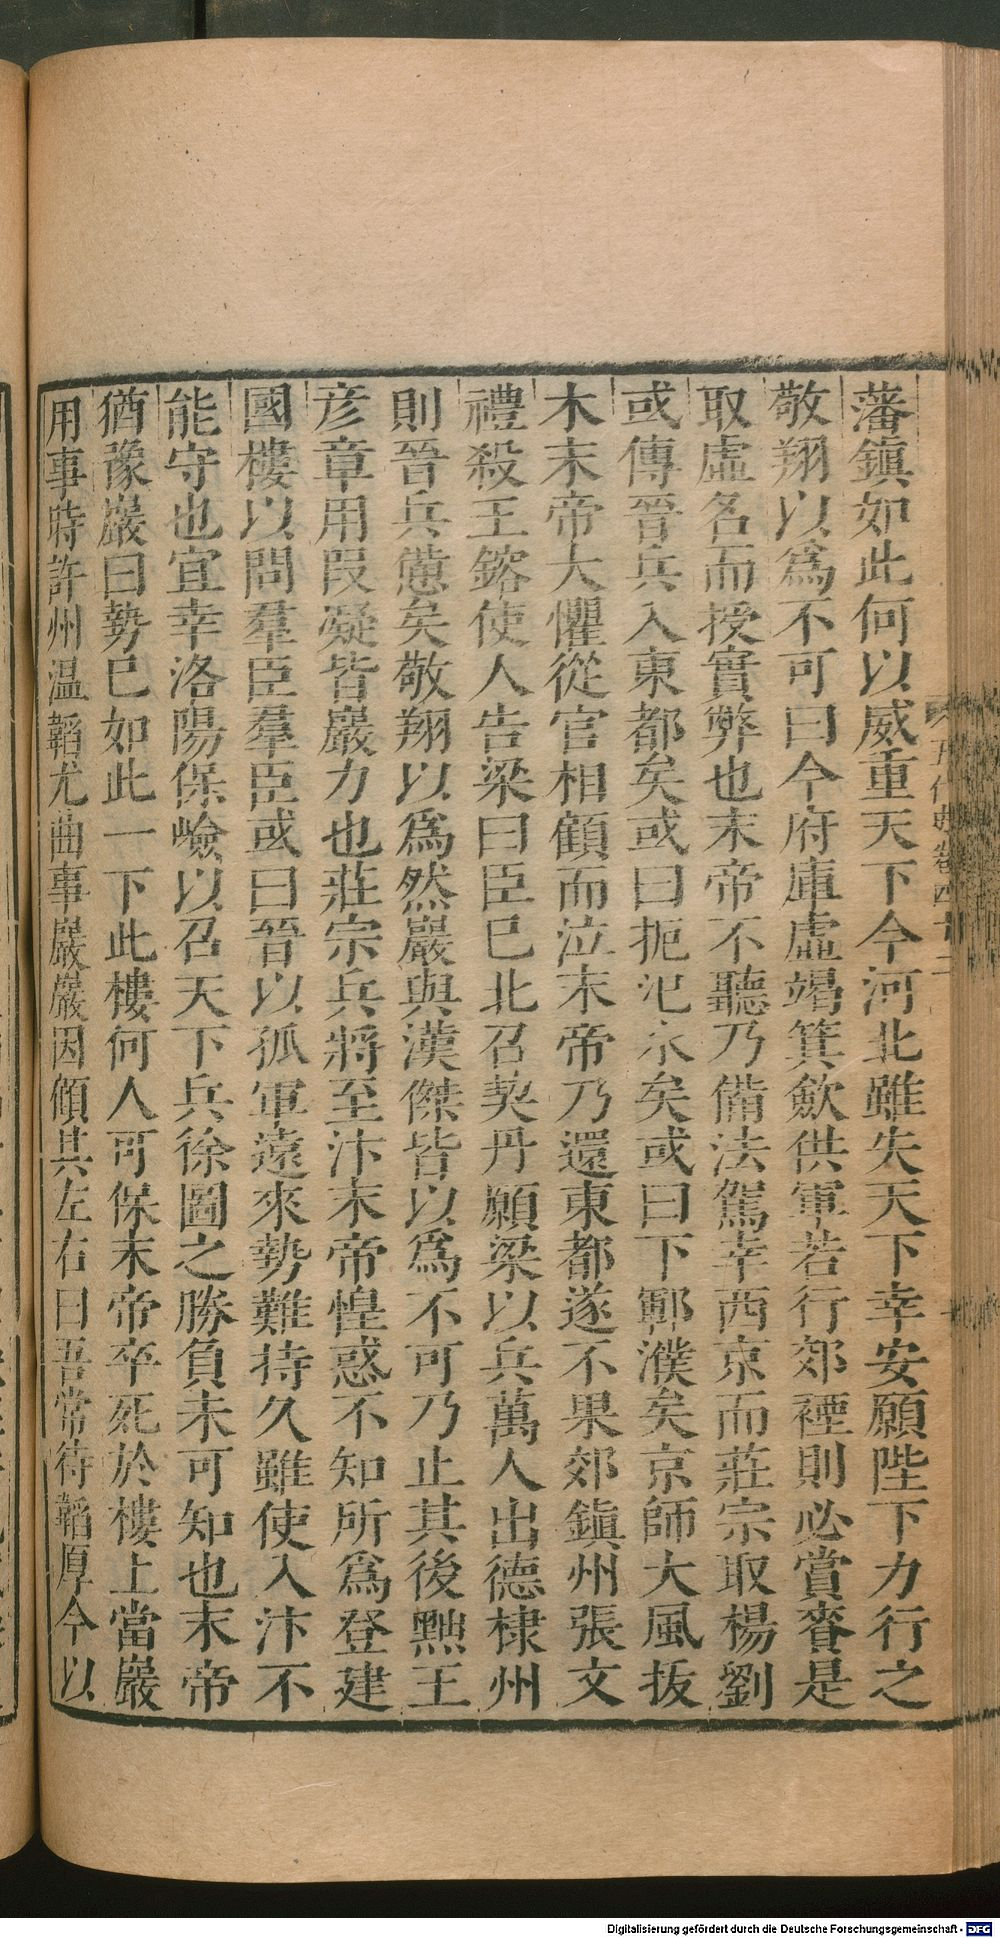 藩鎮如此何以威重天下今河北雖失天下幸安願陛下力行之
敬翔以爲不可曰今府庫虛竭箕歛供軍若行郊禋則必賞賚是
取虛名而授實弊也末帝不聽乃備法駕幸西京而莊宗取楊劉
或傳晉兵入東都矣或曰扼汜水矣或曰下鄆濮矣京師大風拔
木末帝大懼從官相顧而泣末帝乃還東都遂不果郊鎮州張文
禮殺王鎔使人告梁曰臣已北召契丹願梁以兵萬人出德棣州
則晉兵憊矣敬翔以爲然巖與漢傑皆以爲不可乃止其後黜王
彦章用段凝皆巖力也莊宗兵將至汴末帝惶惑不知所爲登建
國樓以問羣臣羣臣或曰晉以孤軍遠來勢難持久雖使入汴不
能守也宜幸洛陽保嶮以召天下兵徐圖之勝負未可知也末帝
猶豫巖曰勢已如此一下此樓何人可保末帝卒死於樓上當巖
用事時許州温韜尤曲事巖巖因顧其左右曰吾常待韜厚今以
五代史卷四十二
Digitalisierung gefördert durch die Deutsche Forschungsgemeinschaft - DFG